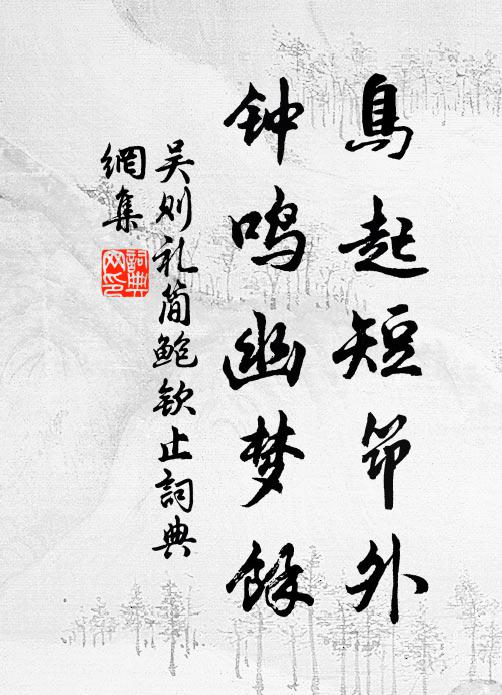 鳥起短笻外
钟鸣幽梦餘
吴则礼简鲍钦止詞典
網集
詞典
网印